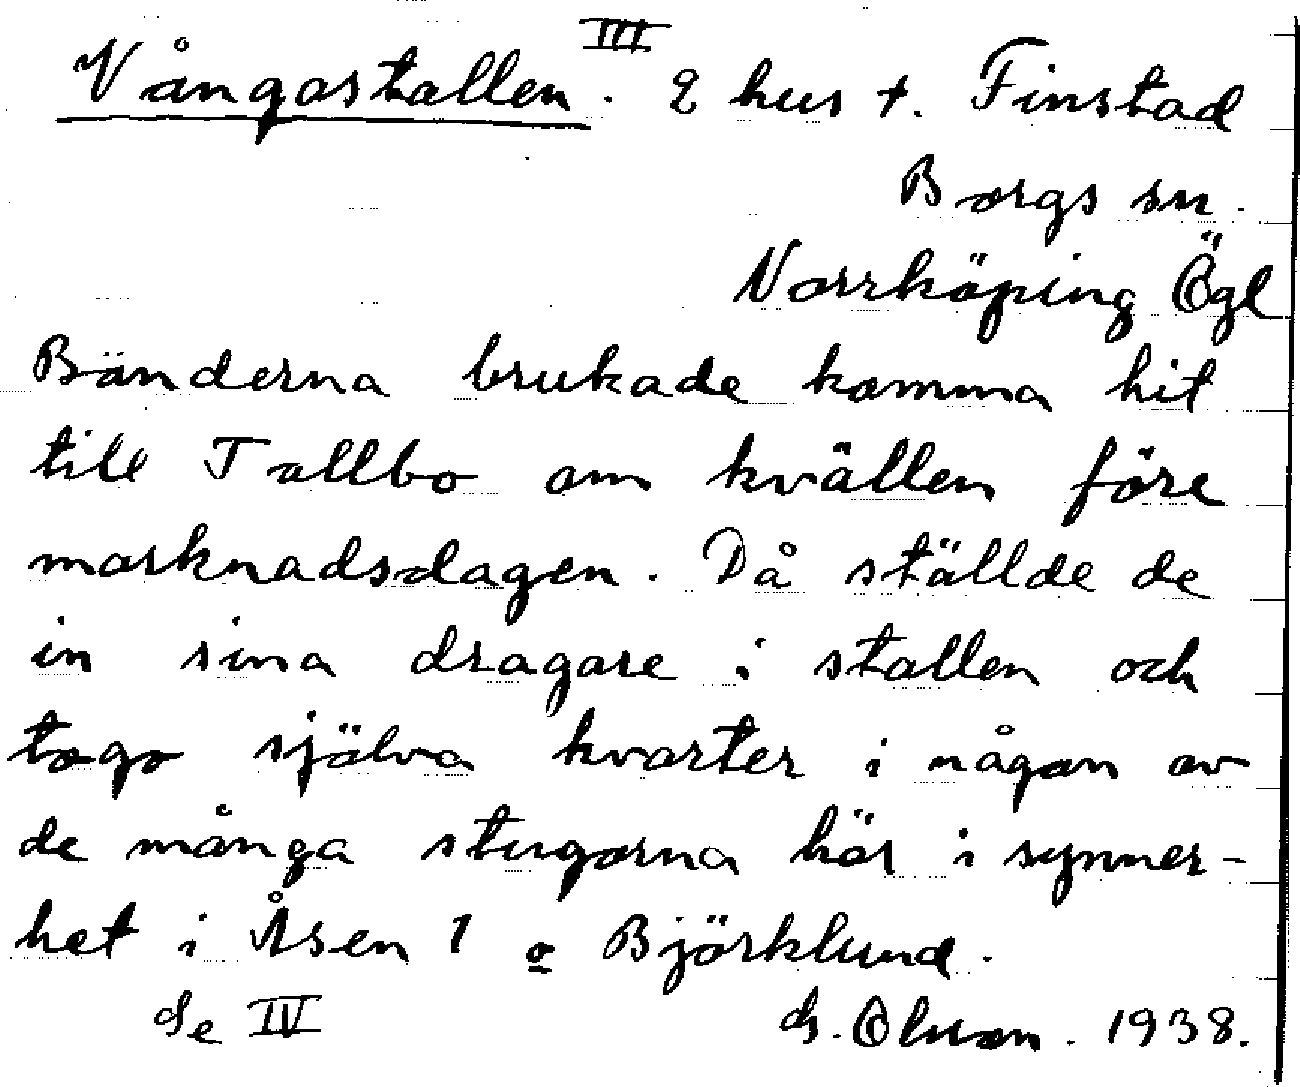 Vångastallen III. 2 hus t. Finstad
Borgs sn.
Norrköping Ögl
Bönderna brukade komma hit
till Tallbo om kvällen före
marknadsdagen. Då ställde de
in sina dragare i stallen och
togo själva kvarter i någon av
de många stugorna här i synner-
het i Åsen 1 o Björklund.
Se IV G. Olsson. 1938.